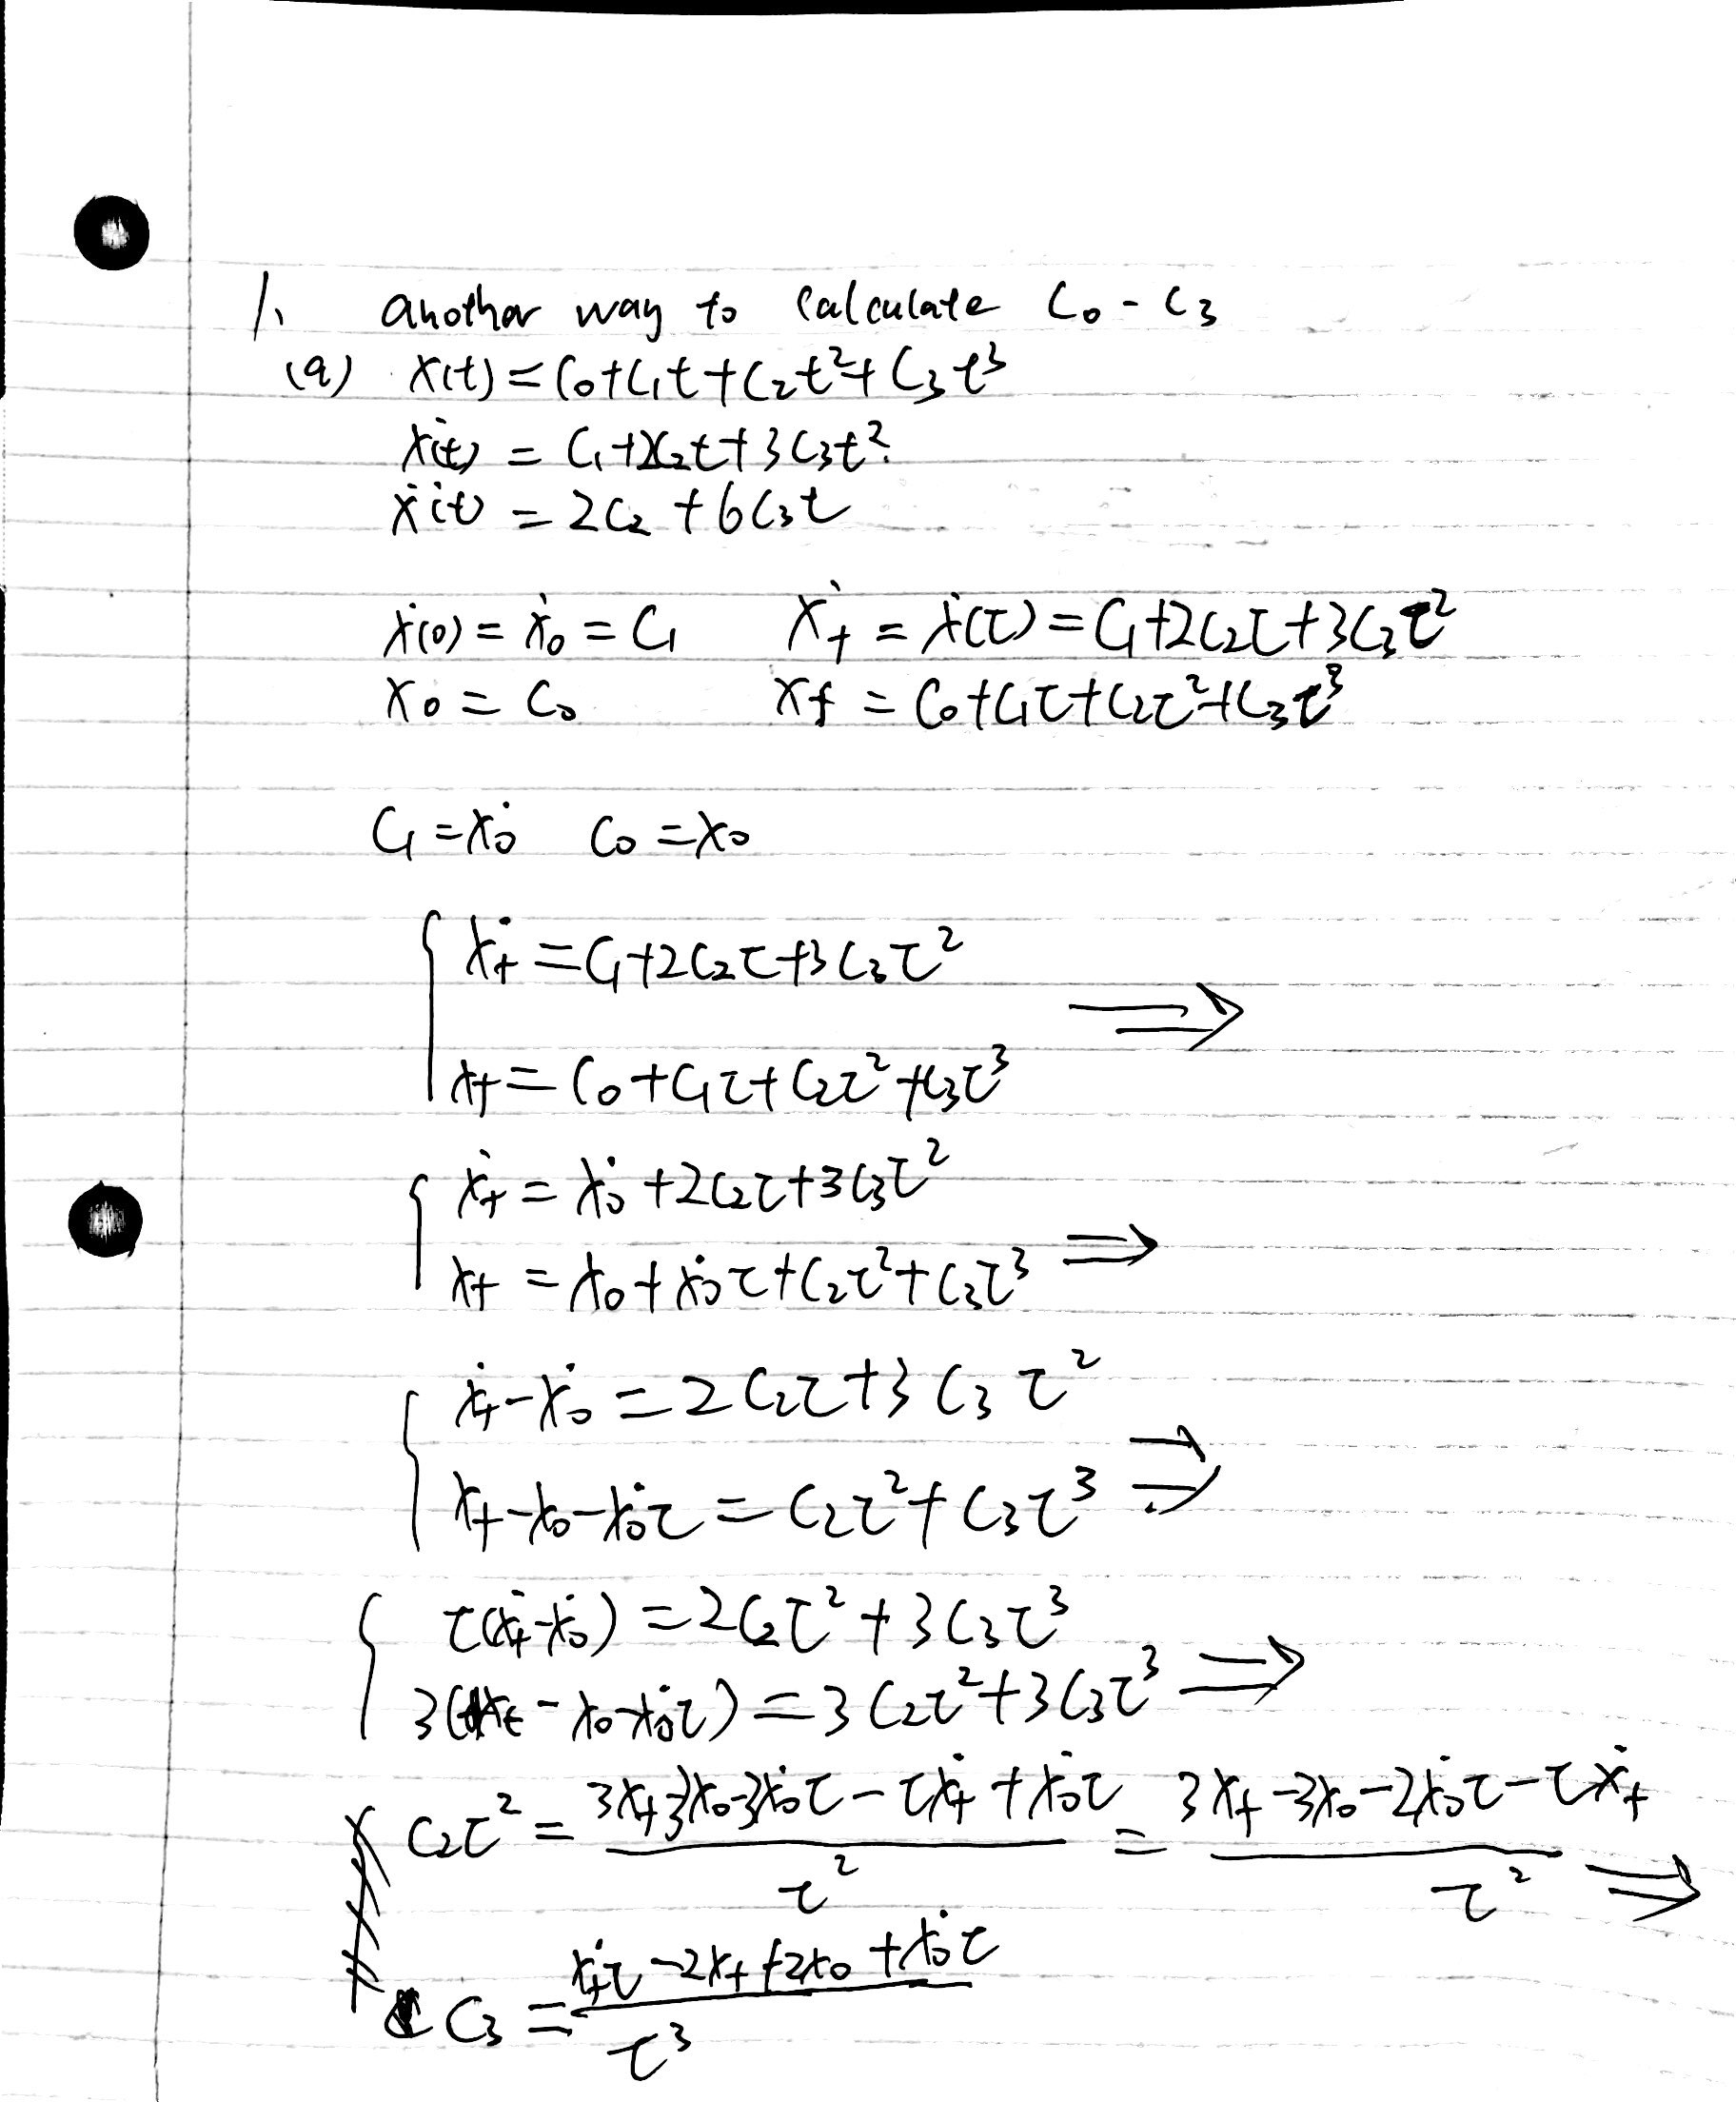 1. another way to calculate C₀ - C₃
(a) x(t) = C₀+C₁t+C₂t²+C₃t³
ẋ(t) = C₁+2C₂t+3C₃t²
ẍ(t) = 2C₂+6C₃t
ẋ(0) = ẋ₀ = C₁ ẋf = ẋ(τ) = C₁+2C₂τ+3C₃τ²
x₀ = C₀ xf = C₀+C₁τ+C₂τ²+C₃τ³
C₁ = ẋ₀ C₀ = x₀
{ ẋf = C₁+2C₂τ+3C₃τ²
⇒
xf = C₀+C₁τ+C₂τ²+C₃τ³
{ ẋf = ẋ₀+2C₂τ+3C₃τ²
xf = x₀+ẋ₀τ+C₂τ²+C₃τ³ ⇒
{ ẋf-ẋ₀ = 2C₂τ+3C₃τ²
xf-x₀-ẋ₀τ = C₂τ²+C₃τ³ ⇒
{ τ(ẋf-ẋ₀) = 2C₂τ²+3C₃τ³
3(xf-x₀-ẋ₀τ) = 3C₂τ²+3C₃τ³ ⇒
C₂τ² = (3xf-3x₀-3ẋ₀τ-τẋf+ẋ₀τ)/τ² = (3xf-3x₀-2ẋ₀τ-τẋf)/τ² ⇒
C₃ = (ẋfτ-2xf+2x₀+ẋ₀τ)/τ³